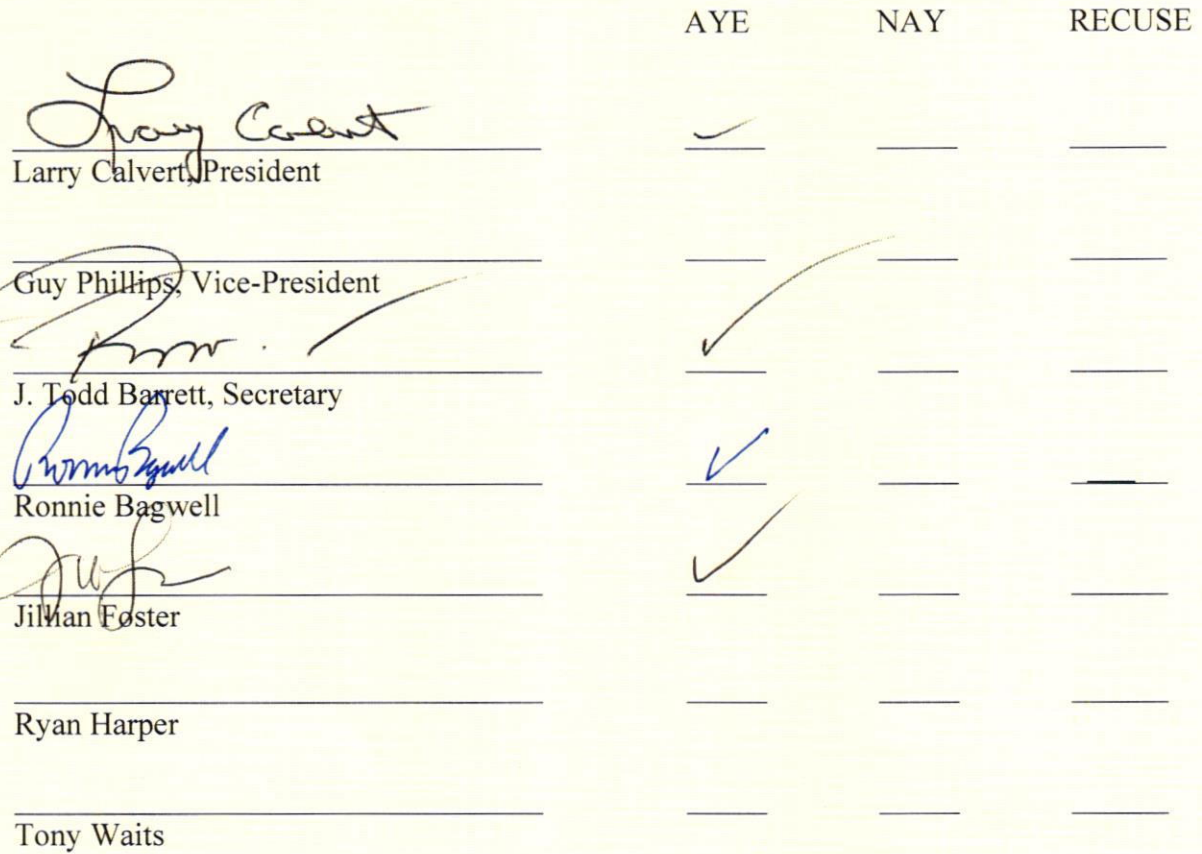 AYE NAY RECUSE
Larry Calvert ✓
Larry Calvert, President
Guy Phillips, Vice-President
✓
J. Todd Barrett, Secretary
Ronnie Bagwell ✓
Ronnie Bagwell
✓
Jillian Foster
Ryan Harper
Tony Waits